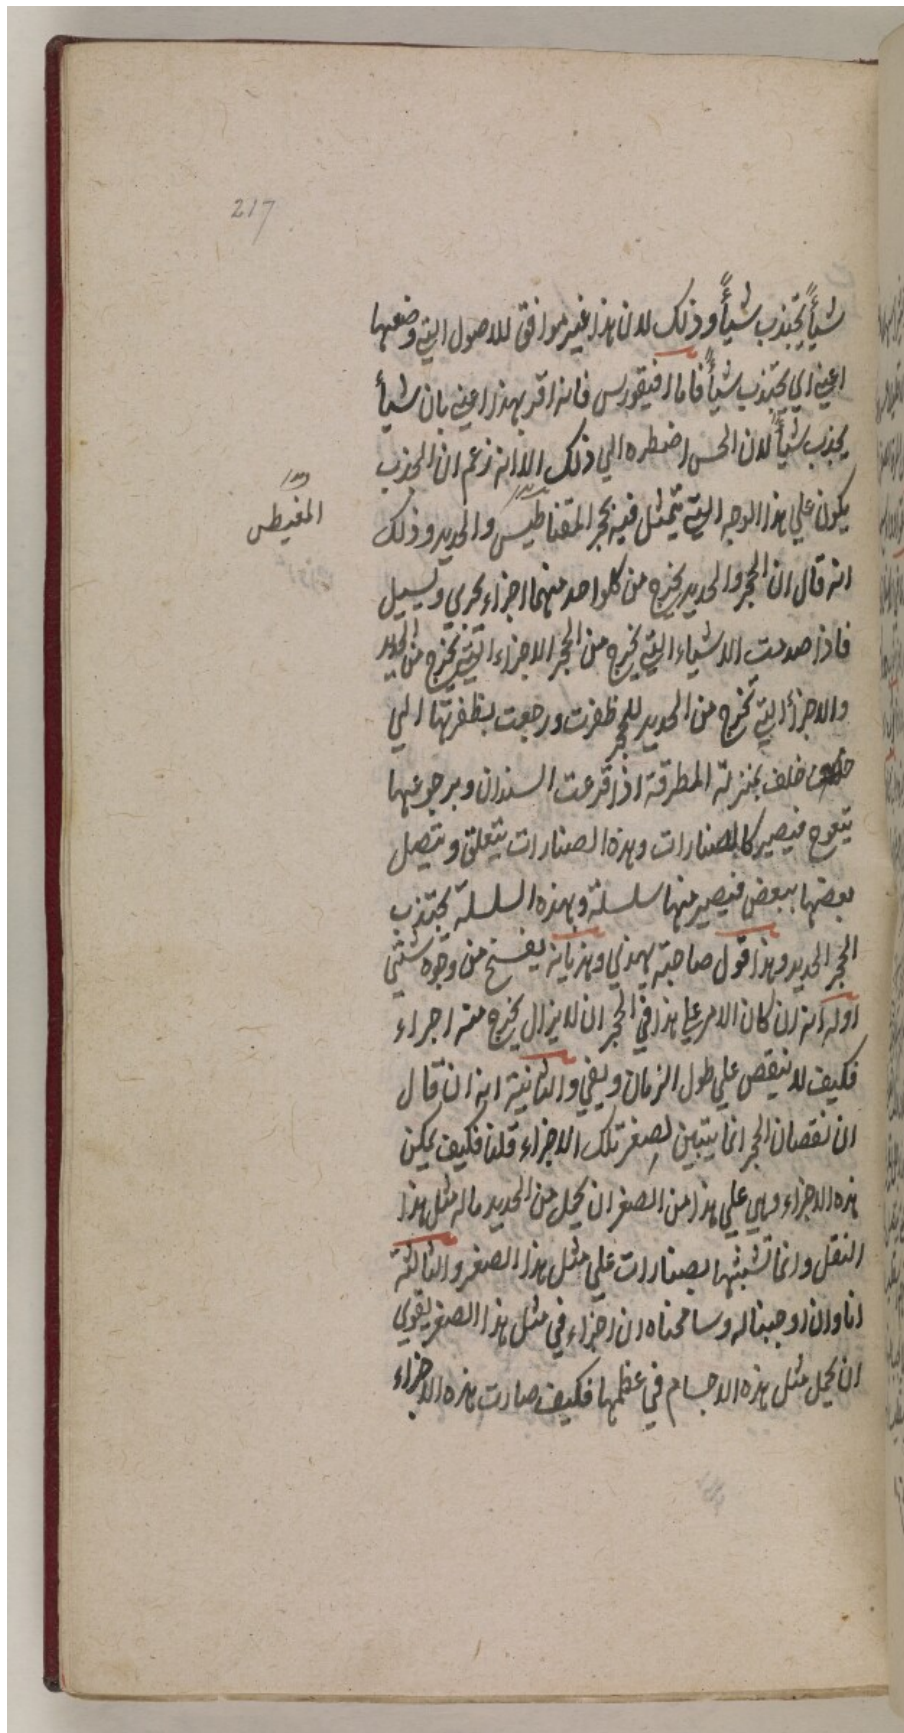 217
شيأً يجتذب شيأً وذلك لان هذا غير موافق للاصول التي وضعها
اعني اي يجتذب شيأً فاما افيقورس فانه اقر بهذا اعني بان شيأ
يجذب شيأً لان الحس اضطره الي ذلك الا انه زعم ان الجذب
يكون علي هذا الوجه التي يتمثل فيه بحجر المقناطيس والحديد وذلك
المغنيطس
انه قال ان الحجر والحديد يخرج من كلواحد منهما اجزاء يجري ويسيل
فاذا صدمت الاشياء التي يخرج من الحجر الاجزاء التي يخرج من الحديد
والاجزأ التي تخرج من الحديد للحجر ظفرت ورجعت بظفرتها الي
خلف بمنزلة المطرقة اذا قرعت السندان وبرجوعها
يتعوج فيصير كالصنارات وهذه الصنارات يتعلق ويتصل
بعضها ببعض فيصير منها سلسلة وبهذه السلسلة يجتذب
الحجر الحديد وهذا قول صاحبه يهذي وهذيانه يفسخ من وجوه شتي
اوله انه ان كان الامر علي هذا في الحجر ان لا يزال يخرج منه اجراء
فكيف لا ينقص علي طول الزمان ويفني والثانية انه ان قال
ان نقصان الحجر انما يتبين لصغر تلك الاجزاء قلنا فكيف يمكن
هذه الاجزاء وهي علي هذا من الصغر ان يحمل من الحديد ماله مثل هذا
الثقل وانما تشبثها بصنارات علي مثل هذا الصغر والثالثة
انا وان اوجبنا له وسامحناه ان اجزاء في مثل هذا الصغر يقوي
ان يحمل مثل هذه الاجسام في عظمها فكيف صارت هذه الاجزاء